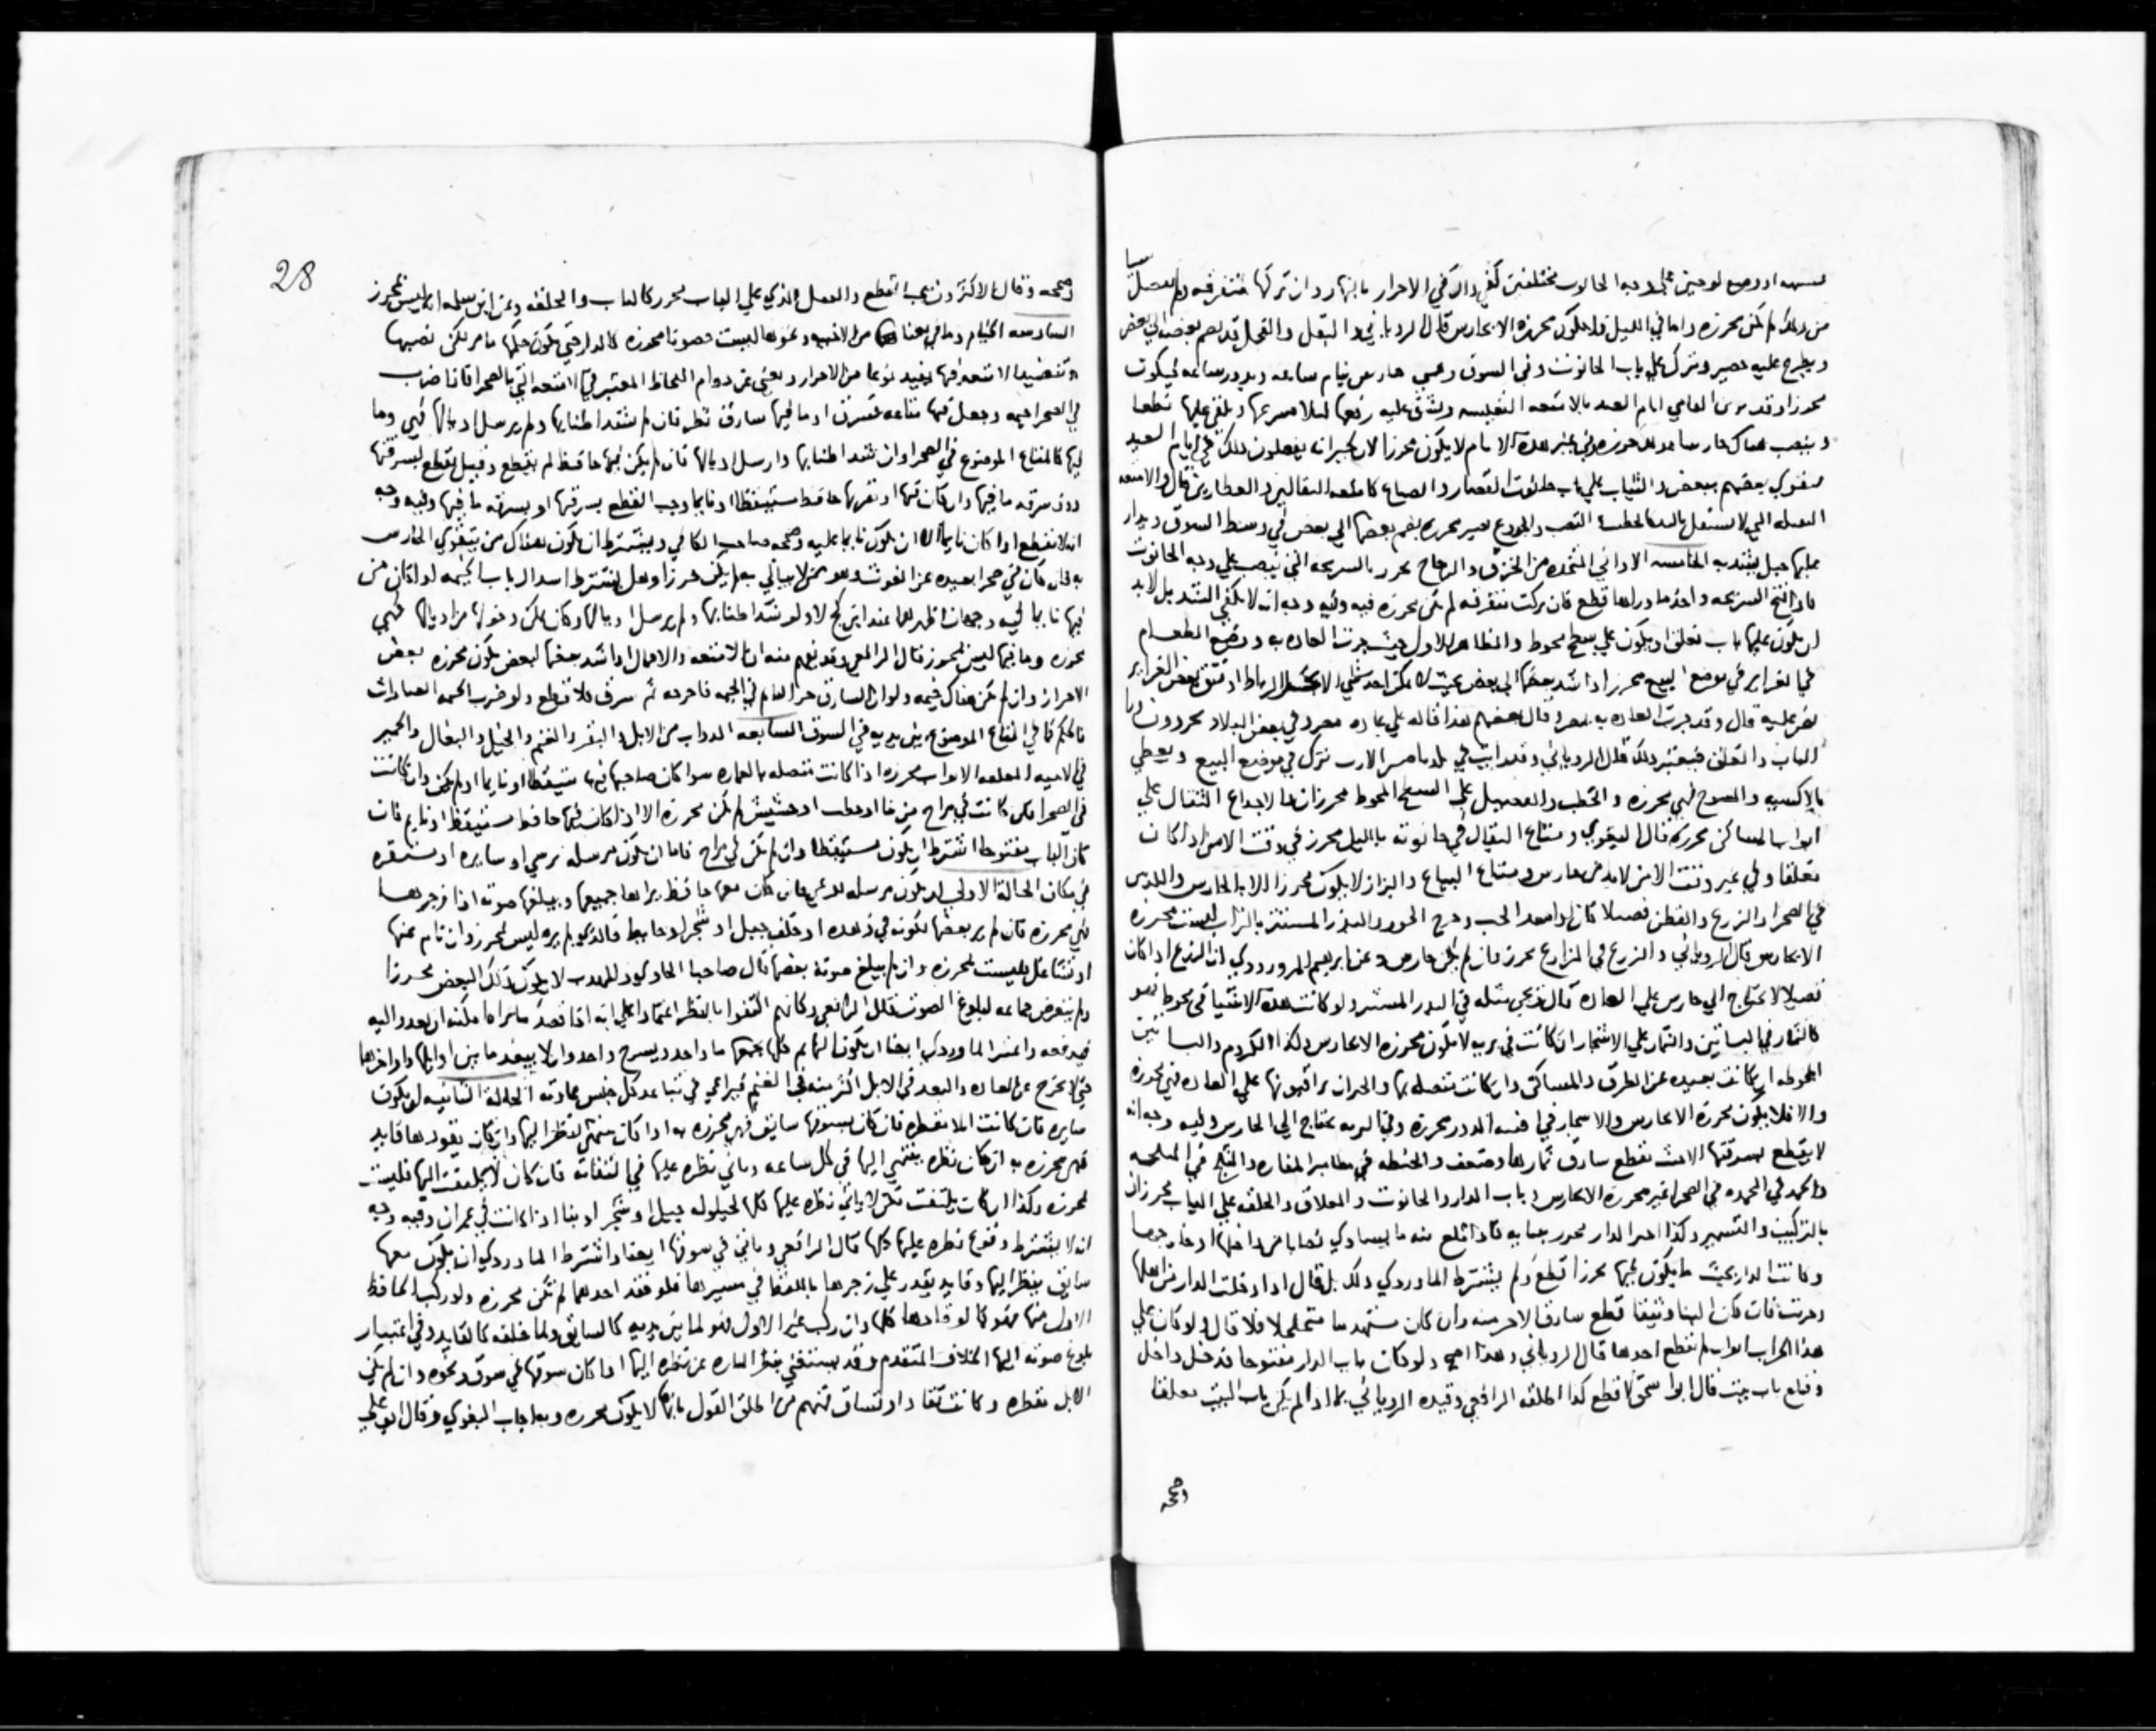 او وضع لوحين على وجه الحانوت مختلفين كفى ذلك في الاحراز بالنهار وان تركها متفرقه ولم
من ذلك لم تكن محرزه واما في الليل فلا تكون محرزه الا بحارس قال الروياني والبقل والفجل قد يضم بعضه الى بعض
ويطرح عليه حصير ويترك على باب الحانوت وفي السوق وعسى حارس ينام ساعه ويدور ساعه فيكون
محرزا وقد الفامي ايام العيد بالامتعه النفيسه ويشق عليه رفعها ويلقي عليها نطعا
وينصب هناك حارسا محرزه وفي غير هذه الايام لا يكون محرزا لان جيرانه يفعلون ذلك في ايام العيد
فيقوى بعضهم ببعض والثياب على باب حانوت القصار والصباغ كامتعه البقالين والعطارين قال والامتعه
الثقيله التي لا تستقل باليد كالحطب القصب والجذوع غير محرزه بضم بعضها الى بعض في وسط السوق ويدار
عليها حبل يشد به الخامسه الاواني المتخذه من الخزف والزجاج تحرز بالشريحه التي تنصب على وجه الحانوت
فاذا فتح الشريحه واخذ ما وراها قطع فان تركت متفرقه لم تكن محرزه فيه وفيه وجه انه لا يكفي الشد بل لا بد
ان يكون عليها باب مغلق او يكون على سطح محوط والظاهر الاول حيث جرت العاده به ووضع الطعام
في الغراير في موضع البيع محرز اذا شد بعضها الى بعض بحيث لا يمكن اخذ شي الا بحل الرباط او فتق بعض الغراير
نص عليه قال وقد جرت العاده به بمصر وقال بعضهم هذا قاله على عاده مصر وفي بعض البلاد يحرزون
الباب والغلق فيعتبر ذلك قال الروياني وقد رايت في بلدنا الارز يترك في موضع البيع ويغطى
بالاكسيه فهي محرزه والحطب على السطح المحوط محرزان كالاجذاع الثقال على
ابواب المساكن محرزه قال البغوي ومتاع البقال في حانوته بالليل محرز في وقت الامن اذا كان
مغلقا وفي غير وقت الامن لا بد من حارس ومتاع البياع والبزاز لا يكون محرزا الا بالحارس
في الصحرا والزرع والقطن فصيلا كان او المستتر بالتراب ليست محرزه
الا بحارس قال الروياني والزرع في المزارع محرز وان لم يكن حارس وعن ابراهيم المروروذي ان الزرع اذا كان
فصيلا لا يحتاج الى حارس على العاده قال فيجي مثله في البذر المستتر ولو كانت هذه الاشيا في محوط فهو
كالثمار في البساتين والثمار على الاشجار ان كانت في بريه لا تكون محرزه الا بحارس وكذا الكروم والبساتين
المحوطه ان كانت بعيده عن الطرق والمساكن وان كانت متصله بها والجيران يراقبونها على العاده فهي محرزه
والا فلا تكون محرزه الا بحارس والاشجار في افنيه الدور محرزه وفي البريه يحتاج الى الحارس وفيه وجه انه
لا يقطع بسرقتها الا حيث يقطع سارق ثمارها وضعف والحنطه في مطامير المفازه والثلج في المثلجه
والجمد في المجمده في الصحرا غير محرزه الا بحارس وباب الدار والحانوت والمغلاق والحلقه على الباب محرزان
بالتركيب والتسمير وكذا اجر الدار محرز ببنايه فاذا قلع منه ما يساوي نصابا من داخل او خارج
وكانت الدار بحيث ما يكون فيها محرزا قطع ولم يشترط الماوردي ذلك بل قال اذا دخلت الدار من اهلها
وخربت فان كان البنا وثيقا قطع سارق الاجر منه وان كان مستهدما متخلخلا فلا قال ولو كان على
هذا الخراب ابواب لم تقطع احدها قال الروياني وهذا اصح ولو كان باب الدار مفتوحا فدخل داخل
وقلع باب بيت قال ابو اسحق لا قطع كذا اطلقه الرافعي وقيده الروياني بما اذا لم يكن باب البيت مغلقا
وصححه
28
وصححه وقال الاكثرون يجب القطع والقفل الذي على الباب محرز كالباب والحلقه وعن ابن سلمه انه ليس بمحرز
السادسه الخيام وما في معناها من الاخبيه ونحوها ليست حصونا محرزه كالدار حتى يكون حكمها ما مر لكن نصبها
وتنضيد الامتعه فيها يفيد نوعا من الاحراز ويغني عن دوام اللحاظ المعتبر في الامتعه التي بالصحرا فاذا ضرب
في الصحرا خيمه وجعل فيها متاعه فسرق او ما فيها سارق نظر فان لم يشد اطنابها ولم يرسل اذيالها فهي وما
فيها كالمتاع الموضوع في الصحرا وان شد اطنابها وارسل اذيالها فان لم يكن فيها حافظ لم يقطع وقيل يقطع بسرقتها
دون سرقه ما فيها وان كان فيها او بقربها حافظ مستيقظا او نايما وجب القطع بسرقتها او بسرقه ما فيها وفيه وجه
انه لا يقطع اذا كان نايما الا ان يكون نايما عليه وصححه صاحب الكافي ويشترط ان يكون هناك من يتقوى الحارس
به فان كان في صحرا بعيده عن الغوث وهو ممن لا يبالي به لم يكن حرزا وهل يشترط اسدال باب الخيمه اذا كان من
فيها نايما فيه وجهان اظهرهما عند ابن كج لا ولو شد اطنابها ولم يرسل اذيالها وكان يمكن دخولها من اذيالها فهي
محرزه وما فيها ليس بمحرز قال الرافعي وقد يفهم منه ان الامتعه والاحمال اذا شد بعضها ببعض يكون محرزه بعض
الاحراز وان لم يكن هناك خيمه ولو ان السارق جر النايم في الخيمه فاخرجه ثم سرق فلا قطع ولو ضرب الخيمه العمارات
فالحكم كما في المتاع الموضوع بين يديه في السوق السابعه الدواب من الابل والبقر والغنم والخيل والبغال والحمير
في الابنيه المغلقه الابواب محرزه اذا كانت متصله بالعماره سوا كان صاحبها فيها مستيقظا او نايما او لم يكن وان كانت
في الصحرا فان كانت في مراح من بنا او حطب او حشيش لم تكن محرزه الا اذا كان فيها حافظ مستيقظ او نايم فان
كان الباب مفتوحا اشترط ان يكون مستيقظا وان لم تكن في مراح فاما ان تكون مرسله ترعى او سايره او مستقره
في مكان الحاله الاولى ان تكون مرسله ترعى فان كان معها حافظ يراها جميعها ويبلغها صوته اذا زجرها
فهي محرزه فان لم ير بعضها لكونه في وهده او خلف جبل او شجر او حايط فالذي لم يره ليس بمحرز وان نام عنها
او تشاغل فليست محرزه وان لم يبلغ صوته بعضها قال صاحبا الحاوي والمهذب لا يكون ذلك البعض محرزا
ولم يتعرض جماعه لبلوغ الصوت قال الرافعي وكانهم اكتفوا بالنظر اعتمادا على انه اذا قصد ما يراها مكنه ان يعدو اليه
فيدفعه واعتبر الماوردي ايضا ان يكون البهايم كلها يجمعها ما واحد ومسرح واحد وان لا يبعد ما بين اوايلها واواخرها
حتى لا يخرج عن العاده والبعد في الابل اكثر منه في الغنم فيراعي في تباعد كل جنس عادته الحاله الثانيه ان تكون
سايره فان كانت الابل مقطره فان كان يسوقها سايق فهي محرزه به اذا كان ينتهي نظره اليها وان كان يقودها قايد
فهي محرزه به ان كان نظره ينتهي اليها في كل ساعه وياتي نظره عليها في التفاته فان كان لا يلتفت اليها فليست
محرزه وكذا ان كان يلتفت لكن لا ياتي نظره عليها كلها لحيلوله جبل او شجر او بنا اذا كانت في عمران وفيه وجه
انه لا يشترط وقوع نظره عليها كلها قال الرافعي وياتي في سوقها ايضا واشترط الماوردي ان يكون معها
سايق ينظر اليها وقايد يقدر على زجرها باللفظ في مسيرها فلو فقد احدهما لم تكن محرزه ولو ركب الحافظ
الاول منها فهو كما لو قادها كلها وان ركب غير الاول فهو لما بين يديه كالسايق ولما خلفه كالقايد وفي اعتبار
بلوغ صوته اليها الخلاف المتقدم وقد يستغني بنظر الماره عن نظره اليها اذا كان سوقها في سوق ونحوه وان لم تكن
الابل مقطره وكانت تقاد او تساق فمنهم من اطلق القول بانها لا تكون محرزه وبه اجاب البغوي وقال ابو علي